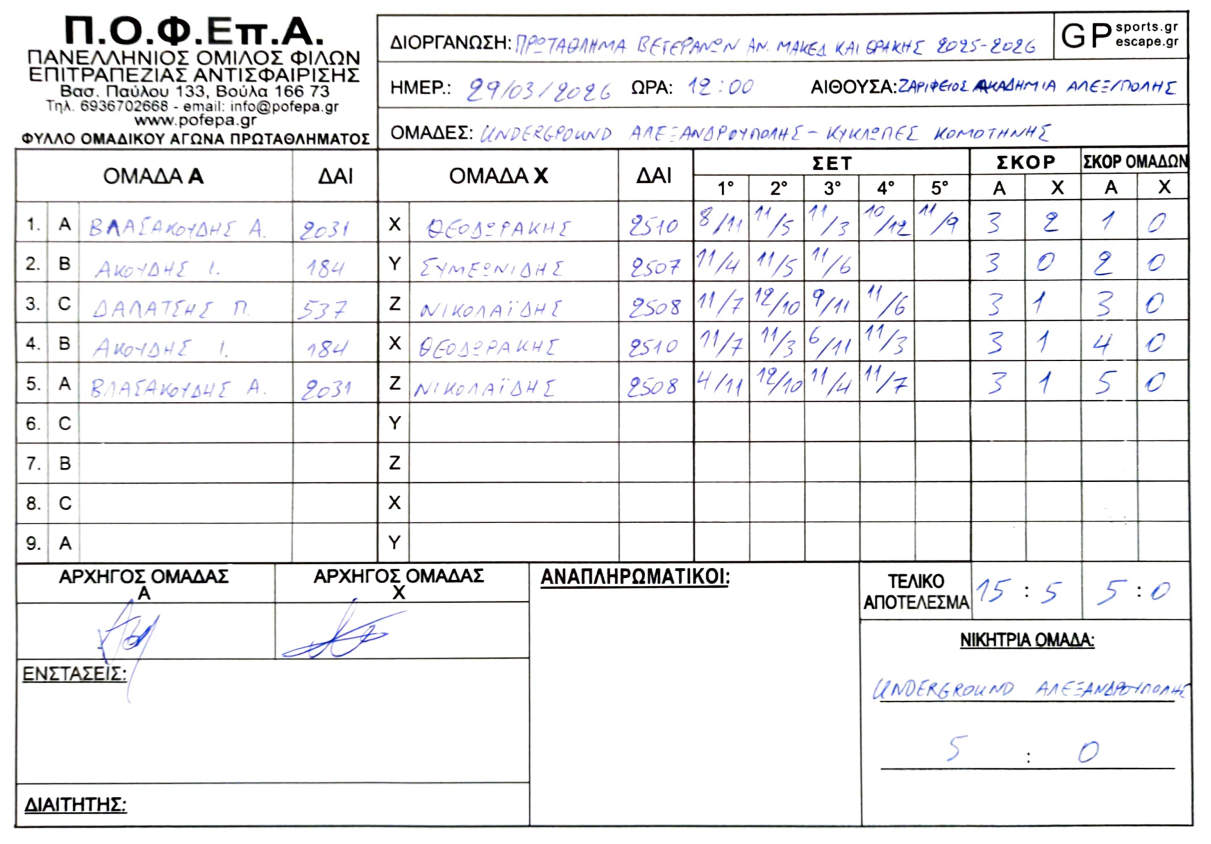 Π.Ο.Φ.Επ.Α.
ΠΑΝΕΛΛΗΝΙΟΣ ΟΜΙΛΟΣ ΦΙΛΩΝ
ΕΠΙΤΡΑΠΕΖΙΑΣ ΑΝΤΙΣΦΑΙΡΙΣΗΣ
Βασ. Παύλου 133, Βούλα 166 73
Τηλ. 6936702668 - email: info@pofepa.gr
www.pofepa.gr
ΦΥΛΛΟ ΟΜΑΔΙΚΟΥ ΑΓΩΝΑ ΠΡΩΤΑΘΛΗΜΑΤΟΣ
ΔΙΟΡΓΑΝΩΣΗ: ΠΡΩΤΑΘΛΗΜΑ ΒΕΤΕΡΑΝΩΝ ΑΝ. ΜΑΚΕΔ ΚΑΙ ΘΡΑΚΗΣ 2025-2026
GP sports.gr escape.gr
ΗΜΕΡ.: 29/03/2026 ΩΡΑ: 12:00 ΑΙΘΟΥΣΑ: ΖΑΡΙΦΕΙΟΣ ΑΚΑΔΗΜΙΑ ΑΛΕΞ/ΠΟΛΗΣ
ΟΜΑΔΕΣ: UNDERGROUND ΑΛΕΞΑΝΔΡΟΥΠΟΛΗΣ - ΚΥΚΛΩΠΕΣ ΚΟΜΟΤΗΝΗΣ
ΟΜΑΔΑ Α ΔΑΙ ΟΜΑΔΑ Χ ΔΑΙ ΣΕΤ ΣΚΟΡ ΣΚΟΡ ΟΜΑΔΩΝ
1° 2° 3° 4° 5° Α Χ Α Χ
1. A ΒΛΑΣΑΚΟΥΔΗΣ Α. 2031 X ΘΕΟΔΩΡΑΚΗΣ 2510 8/11 11/5 11/3 10/12 11/9 3 2 1 0
2. B ΑΚΟΥΔΗΣ Ι. 184 Y ΣΥΜΕΩΝΙΔΗΣ 2507 11/4 11/5 11/6 3 0 2 0
3. C ΔΑΛΑΤΣΗΣ Π. 537 Z ΝΙΚΟΛΑΪΔΗΣ 2508 11/7 12/10 9/11 11/6 3 1 3 0
4. B ΑΚΟΥΔΗΣ Ι. 184 X ΘΕΟΔΩΡΑΚΗΣ 2510 11/7 11/3 6/11 11/3 3 1 4 0
5. A ΒΛΑΣΑΚΟΥΔΗΣ Α. 2031 Z ΝΙΚΟΛΑΪΔΗΣ 2508 4/11 12/10 11/4 11/7 3 1 5 0
6. C Y
7. B Z
8. C X
9. A Y
ΑΡΧΗΓΟΣ ΟΜΑΔΑΣ Α ΑΡΧΗΓΟΣ ΟΜΑΔΑΣ Χ
ΑΝΑΠΛΗΡΩΜΑΤΙΚΟΙ:
ΤΕΛΙΚΟ ΑΠΟΤΕΛΕΣΜΑ 15 : 5 5 : 0
ΝΙΚΗΤΡΙΑ ΟΜΑΔΑ:
ΕΝΣΤΑΣΕΙΣ:
UNDERGROUND ΑΛΕΞΑΝΔΡΟΥΠΟΛΗΣ
5 : 0
ΔΙΑΙΤΗΤΗΣ: